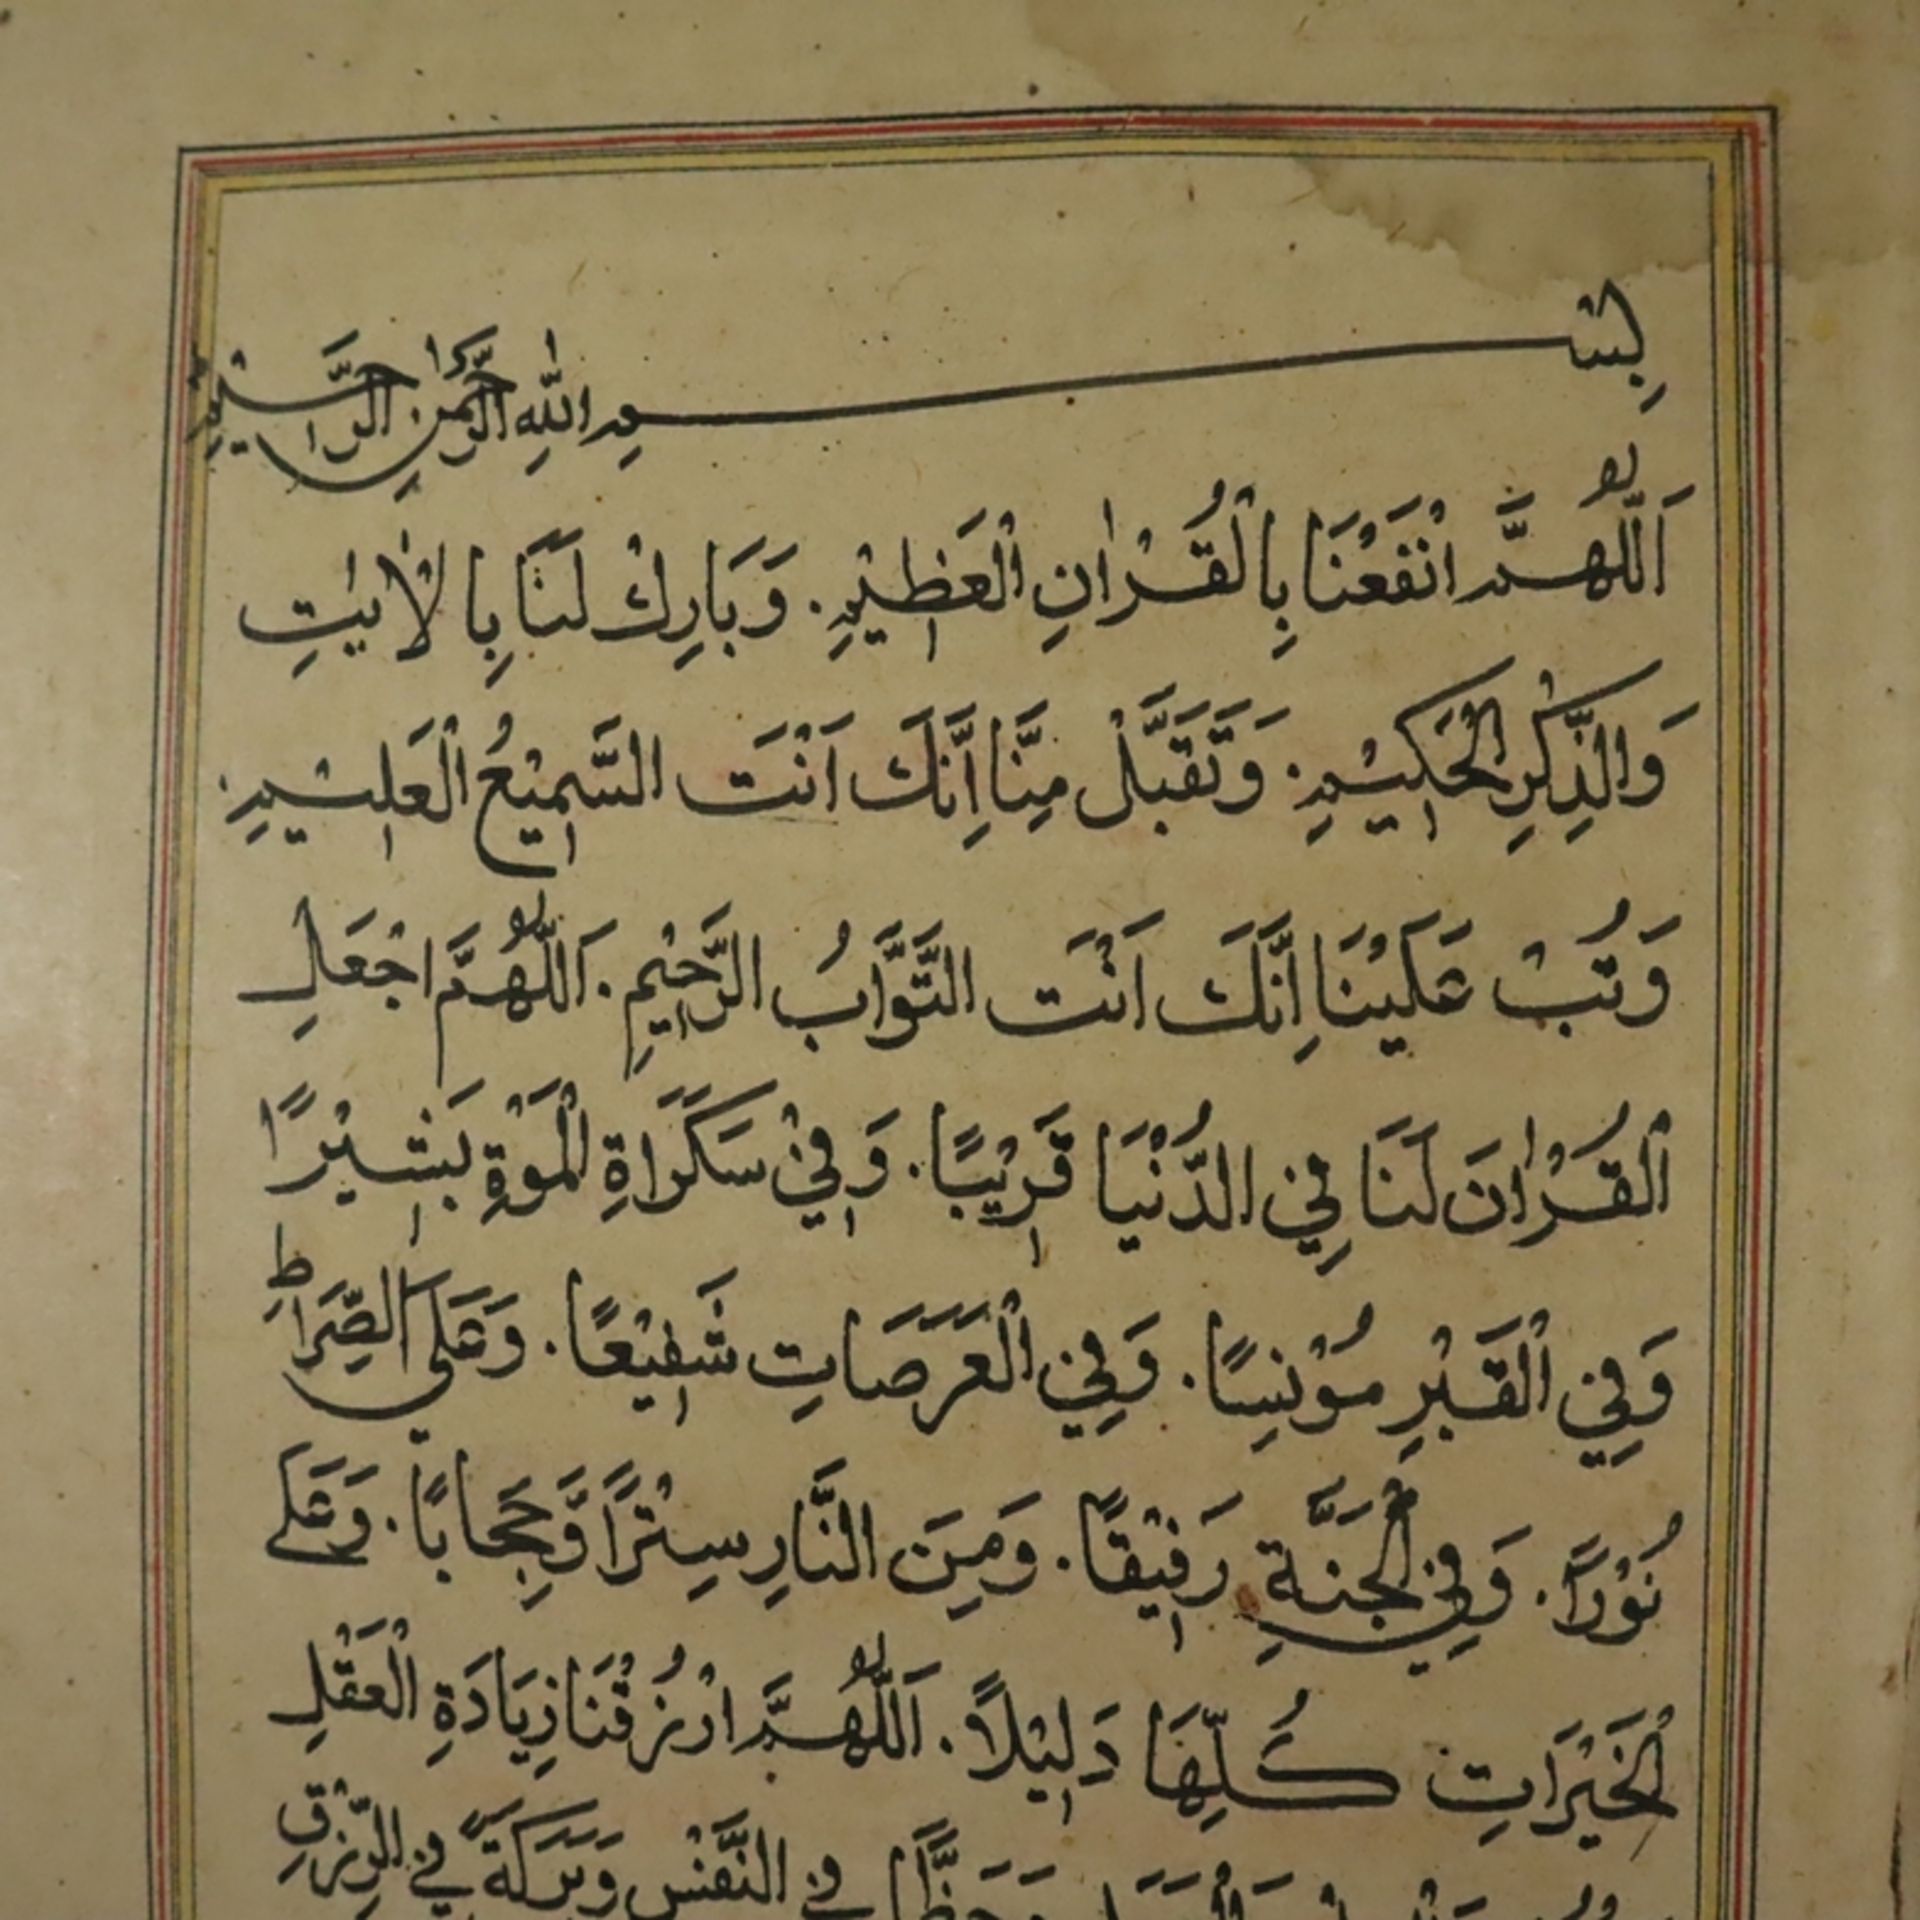 بِسْمِ اللهِ الرَّحْمٰنِ الرَّحِيْمِ
اَللّٰهُمَّ انْفَعْنَا بِالْقُرْاٰنِ الْعَظِيْمِ. وَبَارِكْ لَنَا بِالْاٰيٰتِ
وَالذِّكْرِ الْحَكِيْمِ. وَتَقَبَّلْ مِنَّا اِنَّكَ اَنْتَ السَّمِيْعُ الْعَلِيْمِ.
وَتُبْ عَلَيْنَا اِنَّكَ اَنْتَ التَّوَّابُ الرَّحِيْمِ. اَللّٰهُمَّ اجْعَلِ
الْقُرْاٰنَ لَنَا فِي الدُّنْيَا قَرِيْبًا. وَفِيْ سَكَرَاةِ الْمَوْةِ بَشِيْرًا
وَفِي الْقَبْرِ مُوْنِسًا. وَفِي الْعَرَصَاتِ شَفِيْعًا. وَعَلَى الصِّرَاطِ
نُوْرًا. وَفِي الْجَنَّةِ رَفِيْقًا. وَمِنَ النَّارِ سِتْرًا وَّحِجَابًا. وَعَلَى
الْخَيْرَاتِ كُلِّهَا دَلِيْلًا. اَللّٰهُمَّ ارْزُقْنَا زِيَادَةِ الْعَقْلِ
فِي النَّفْسِ وَبَرَكَةً فِي الرِّزْقِ